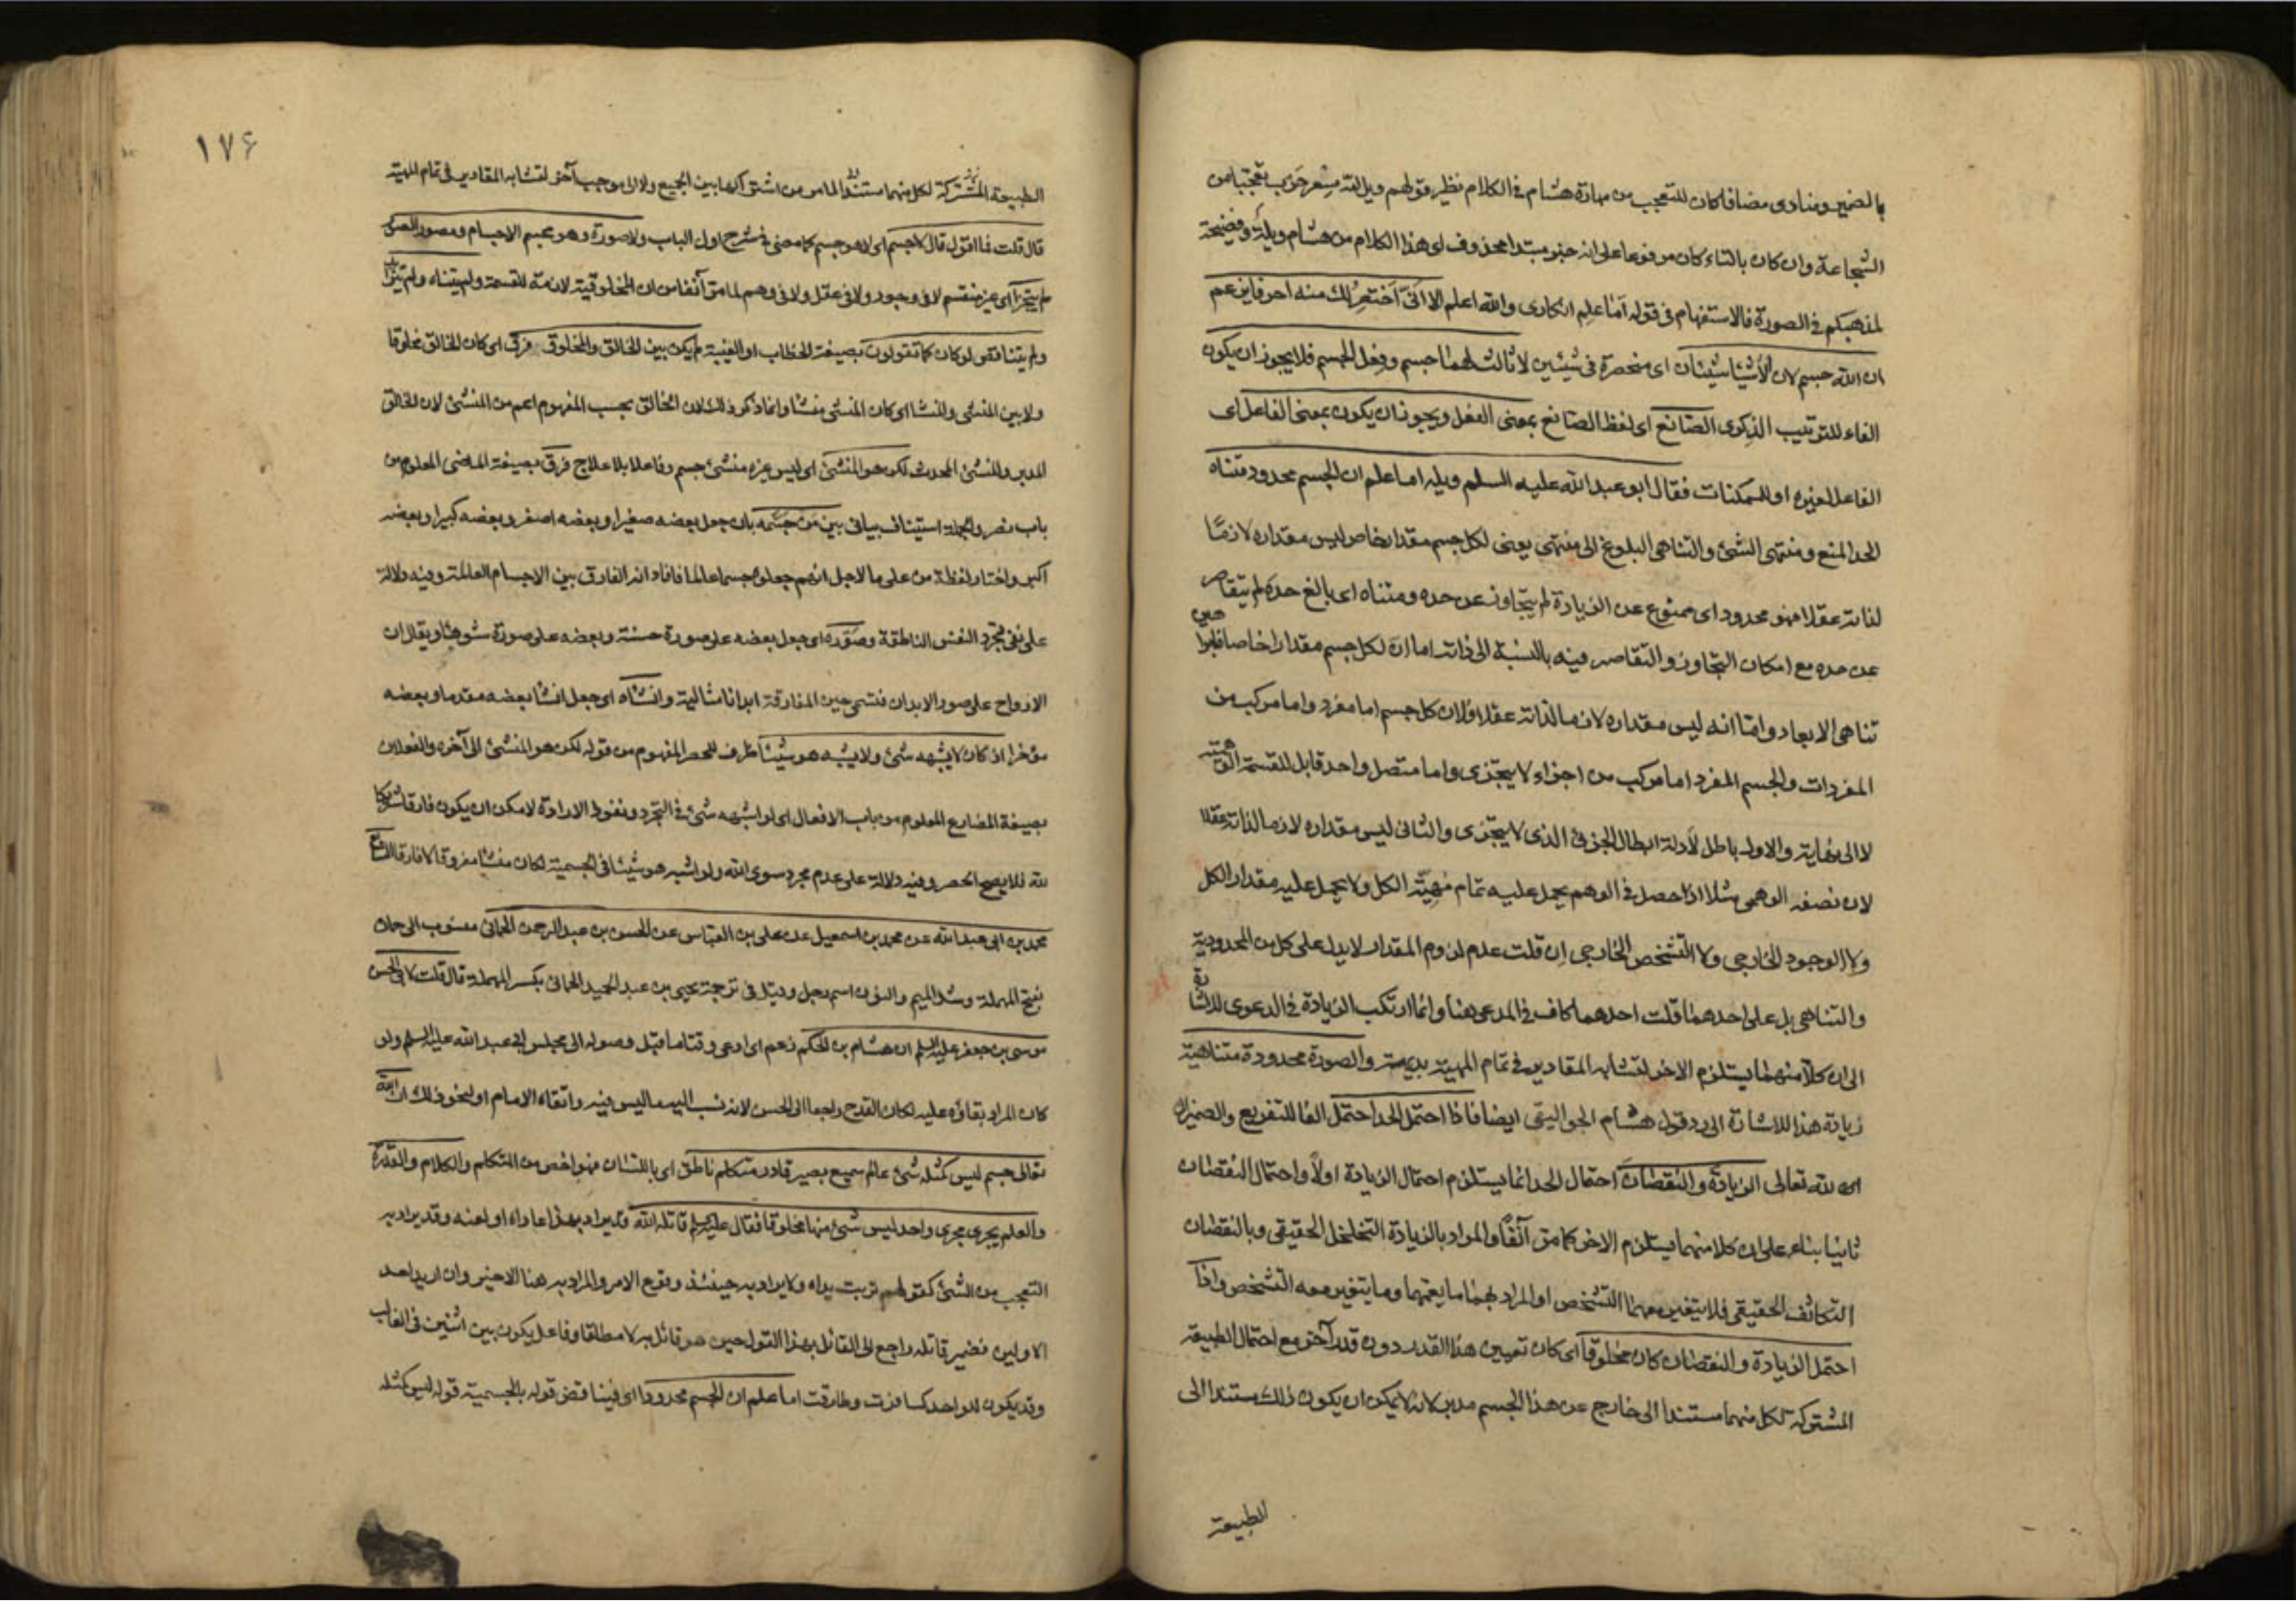 بالضمير ومنادى مضافا كان للتعجب من مهارة هشام في الكلام نظير قولهم ويل امه مسعر حرب تعجبا من
الشجاعة وان كان بالتاء كان مرفوعا على انه خبر مبتدا محذوف اى هذا الكلام من هشام ويلة وفضيحة
لمذهبكم في الصورة فالاستفهام في قوله اما علم انكارى والله اعلم الا انى اختصر لك منه احرفا يزعم
ان الله جسم لان الأشياء شيئان اى منحصرة في شيئين لا ثالث لهما جسم وفعل الجسم فلا يجوز ان يكون
الفاء للترتيب الذكرى الصانع اى لفظ الصانع بمعنى الفعل ويجوز ان يكون بمعنى الفاعل اى
الفاعل لغيره او للممكنات فقال ابو عبد الله عليه السلم ويله اما علم ان الجسم محدود متناه
الحد المنع ومنتهى الشئ والتناهى البلوغ الى منتهى يعنى لكل جسم مقدار خاص ليس مقداره لازمًا
لذاته عقلا فهو محدود اى ممنوع عن الزيادة لم يتجاوز عن حده ومتناه اى بالغ حده لم يتقاصر
عن حده مع امكان التجاوز والتقاصر فيه بالنسبة الى ذاته اما ان لكل جسم مقدارا خاصا
تناهى الابعاد واما انه ليس مقداره لازما لذاته عقلا فلان كل جسم اما مفرد واما مركب من
المفردات والجسم المفرد اما مركب من اجزاء لا يتجزى واما متصل واحد قابل للقسمة الوهمية
لا الى نهاية والاول باطل لأدلة ابطال الجزء الذى لا يتجزى والثانى ليس مقداره لازما لذاته عقلا
لان نصفه الوهمى مثلا اذا حصل في الوهم يحمل عليه تمام مهيّة الكل ولا يحمل عليه مقدار الكل
ولا الوجود الخارجى ولا التشخص الخارجى ان قلت عدم لزوم المقدار لا يدل على كل من المحدودية
والتناهى بل على احدهما قلت احدهما كاف في المدعى هنا وانما ارتكب الزيادة في الدعوى للاشارة
الى ان كلّا منهما يستلزم الاخر لتشابه المقادير في تمام المهية بديهة والصورة محدودة متناهية
زيادة هذا للاشارة الى رد قول هشام الجواليقى ايضا فاذا احتمل الحد احتمل الفا للتفريع والضميران
لله تعالى الزيادة والنقصان احتمال الحد انما يستلزم احتمال الزيادة اولًا واحتمال النقصان
ثانيا بناء على ان كلا منهما يستلزم الاخر كما مر آنفًا والمراد بالزيادة التخلخل الحقيقى وبالنقصان
التكاثف الحقيقى فلا يتغير معهما التشخص او المراد بهما ما يعمهما وما يتغير معه التشخص واذا
احتمل الزيادة والنقصان كان مخلوقا اى كان تعيين هذا القدر دون قدر آخر مع احتمال الطبيعة
المشتركة لكل منهما مستندا الى خارج عن هذا الجسم مدبر لانه لا يمكن ان يكون ذلك مستندا الى
الطبيعة
١٧٦
الطبيعة المشتركة لكل منهما مستندا لما مر من اشتراكها بين الجميع ولا الى موجب آخر لتشابه المقادير في تمام المهية
قال قلت فما اقول قال لا جسم اى لا هو جسم كما مضى في شرح اول الباب ولا صورة وهو مجسم الاجسام ومصور الصور
لم يتجزأ اى غير منقسم لا في وجود ولا في عقل ولا في وهم لما مر آنفا من ان المخلوقية لازمة للقسمة ولم يتناه ولم يتزايد
ولم يتناقص لو كان كما تقولون بصيغة الخطاب او الغيبة لم يكن بين الخالق والمخلوق فرق اى كان الخالق مخلوقا
ولا بين المنشئ والمنشا اى كان المنشئ منشا وانما ذكر ذلك لان الخالق بحسب المفهوم اعم من المنشئ لان الخالق
المدبر والمنشئ المحدث لكن هو المنشئ اى ليس غيره منشئ جسم وفاعلا بلا علاج فرق بصيغة الماضى المعلوم من
باب نصر والجملة استيناف بيانى بين من جسّمه بان جعل بعضه صغيرا وبعضه اصغر وبعضه كبيرا وبعضه
اكبر واختار لفظة من على ما لاجل انهم جعلوه جسما عالما فافاد انه الفارق بين الاجسام العالمة وفيه دلالة
على نفى تجرد النفس الناطقة وصوّره اى جعل بعضه على صورة حسنة وبعضه على صورة شوهاء ويقال ان
الارواح على صور الابدان فتسمى حين المفارقة ابدانا مثالية وانشاه اى جعل انشا بعضه مقدما وبعضه
مؤخرا اذ كان لا يشبهه شئ ولا يشبه هو شيئا ظرف للحصر المفهوم من قوله لكن هو المنشئ الى آخره والفعلان
بصيغة المضارع المعلوم من باب الافعال اى لو اشبهه شئ في التجرد ونفوذ الارادة لامكن ان يكون فارقا شريكا
لله فلا يصح الحصر وفيه دلالة على عدم مجرد سوى الله ولو اشبه هو شيئا في الجسمية لكان منشا مفروقا لا فارقا
محمد بن ابى عبد الله عن محمد بن اسمعيل عن على بن العباس عن الحسن بن عبد الرحمن الحمانى منسوب الى حمان
بفتح المهملة وشد الميم والنون اسم رجل وقيل في ترجمة يحيى بن عبد الحميد الحمانى بكسر المهملة قال قلت لابى الحسن
موسى بن جعفر عليه السلم ان هشام بن الحكم زعم اى ادعى وقتا ما قبل وصوله الى مجلس ابى عبد الله عليه السلم ولو
كان المراد بقاؤه عليه لكان القدح راجعا الى الحسن لانه نسب اليه ما ليس فيه واتقاه الامام او لنحو ذلك ان الله
تعالى جسم ليس كمثله شئ عالم سميع بصير قادر متكلم ناطق اى باللسان فهو اخص من المتكلم والكلام والقدرة
والعلم يجرى مجرى واحد ليس شئ منها مخلوقا فقال عليه السلم قاتله الله قد يراد بهذا عاداه او لعنه وقد يراد به
التعجب من الشئ كقولهم تربت يداه ولا يراد به حينئذ وقوع الامر والمراد به هنا الاخير وان اريد احد
الاولين فضمير قاتله راجع الى القائل بهذا القول حين هو قائل به لا مطلقا وفاعل يكون بين اثنين في الغالب
وقد يكون للواحد كسافرت وطارقت اما علم ان الجسم محدود اى فيناقض قوله بالجسمية قوله ليس كمثله